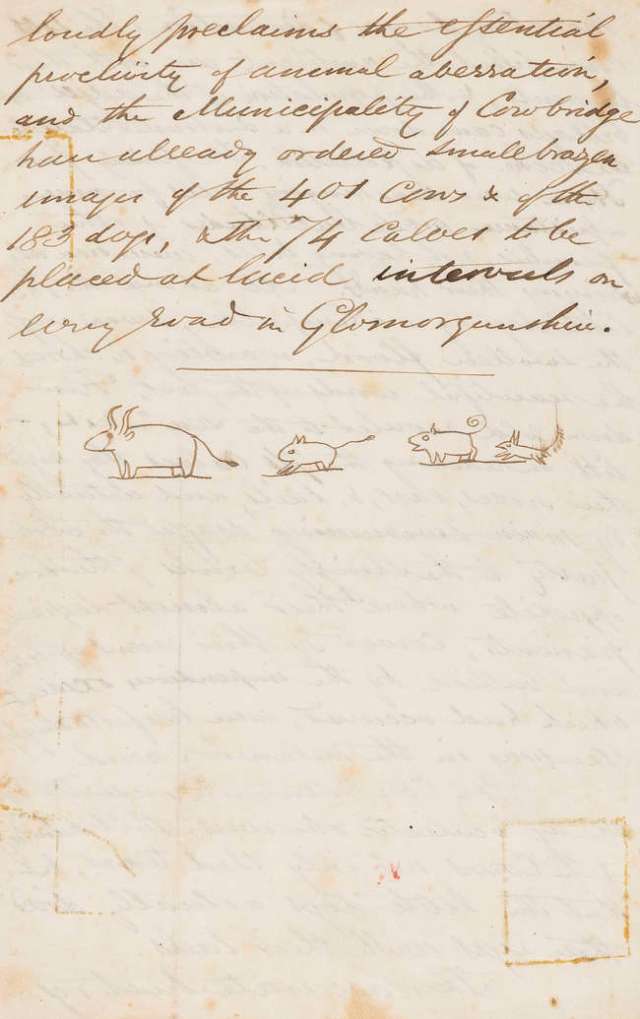 loudly proclaims the essential
proclivity of animal aberration,
and the Municipality of Cowbridge
have already ordered small brazen
images of the 401 Cows & of the
183 dogs, & the 74 Calves to be
placed at lucid intervals on
every road in Glamorganshire.